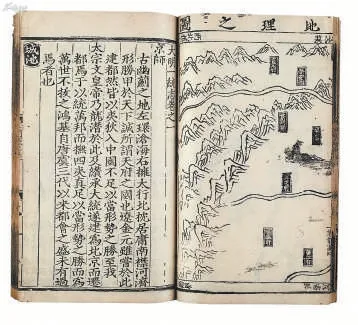 地理之圖
大明一統志卷之
京師
古幽薊之地左環滄海右擁太行北枕居庸南襟河濟
形勝甲於天下誠所謂天府之國也遼金元雖嘗於此
建都然皆以夷狄入中國不足以當形勢之勝至我
太宗文皇帝乃龍潛於此及纘承大統遂建為北京而遷
都焉于以統萬邦而撫四夷真足以當形勢之勝而為
萬世不拔之鴻基自唐虞三代以來都會之盛未有過
焉者也
城池